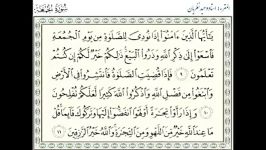 سُورَةُ الجُمُعَة
يَٰٓأَيُّهَا ٱلَّذِينَ ءَامَنُوٓا۟ إِذَا نُودِىَ لِلصَّلَوٰةِ مِن يَوْمِ ٱلْجُمُعَةِ
فَٱسْعَوْا۟ إِلَىٰ ذِكْرِ ٱللَّهِ وَذَرُوا۟ ٱلْبَيْعَ ذَٰلِكُمْ خَيْرٌ لَّكُمْ إِن كُنتُمْ
تَعْلَمُونَ ٩ فَإِذَا قُضِيَتِ ٱلصَّلَوٰةُ فَٱنتَشِرُوا۟ فِى ٱلْأَرْضِ
وَٱبْتَغُوا۟ مِن فَضْلِ ٱللَّهِ وَٱذْكُرُوا۟ ٱللَّهَ كَثِيرًا لَّعَلَّكُمْ تُفْلِحُونَ
١٠ وَإِذَا رَأَوْا۟ تِجَٰرَةً أَوْ لَهْوًا ٱنفَضُّوٓا۟ إِلَيْهَا وَتَرَكُوكَ قَآئِمًا قُلْ
مَا عِندَ ٱللَّهِ خَيْرٌ مِّنَ ٱللَّهْوِ وَمِنَ ٱلتِّجَٰرَةِ وَٱللَّهُ خَيْرُ ٱلرَّٰزِقِينَ ١١